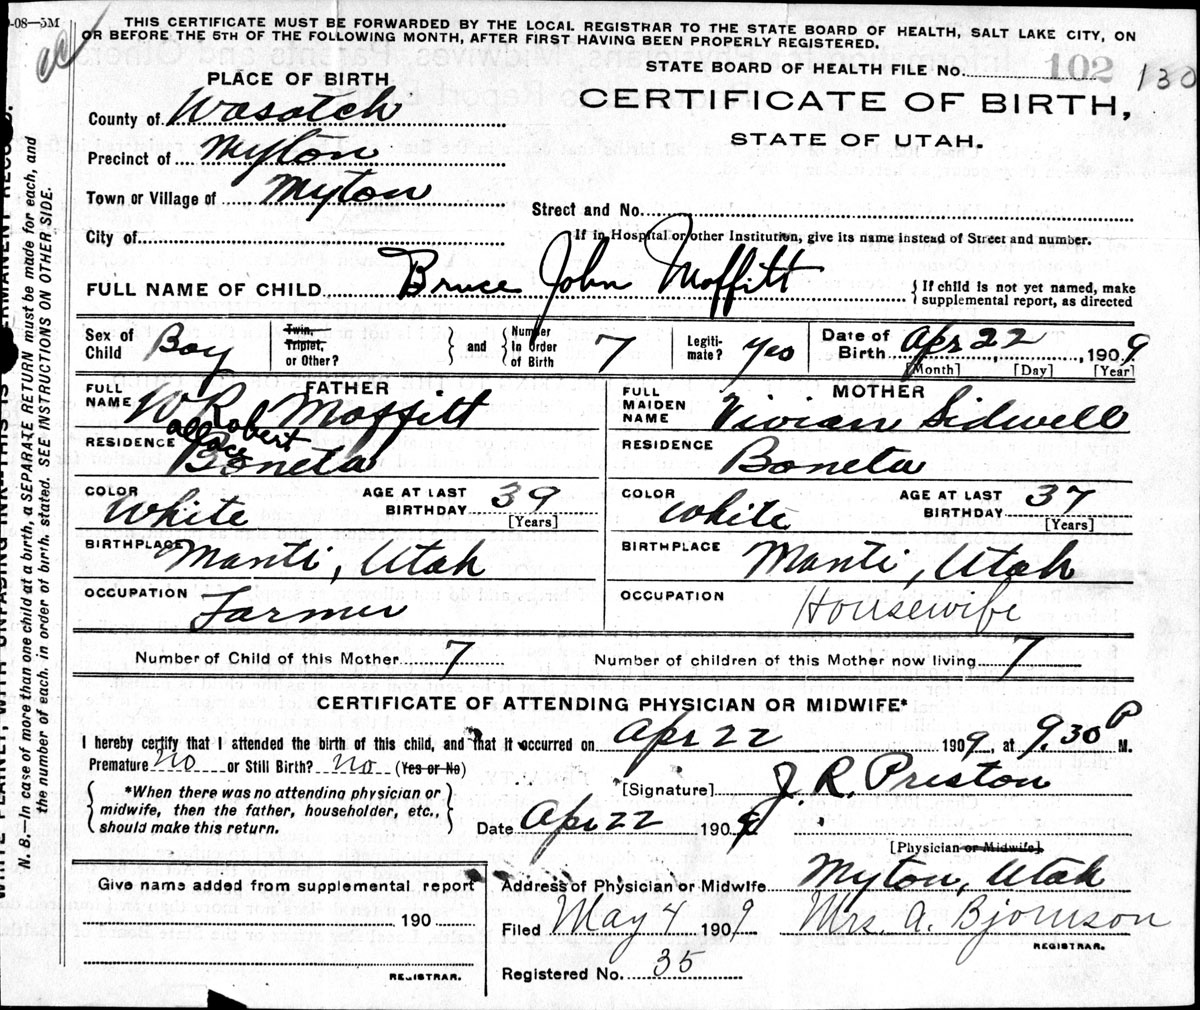 0-08—5M
THIS CERTIFICATE MUST BE FORWARDED BY THE LOCAL REGISTRAR TO THE STATE BOARD OF HEALTH, SALT LAKE CITY, ON
OR BEFORE THE 5TH OF THE FOLLOWING MONTH, AFTER FIRST HAVING BEEN PROPERLY REGISTERED.
STATE BOARD OF HEALTH FILE No. 102 130
PLACE OF BIRTH
CERTIFICATE OF BIRTH,
STATE OF UTAH.
County of Wasatch
Precinct of Myton
Town or Village of Myton
Street and No.
City of
If in Hospital or other Institution, give its name instead of Street and number.
FULL NAME OF CHILD Bruce John Moffitt { If child is not yet named, make
supplemental report, as directed
Sex of Child Boy Twin, Triplet, or Other? } and { Number In Order of Birth 7 Legiti-mate? yes Date of Birth Apr 22, 1909
[Month] [Day] [Year]
FATHER
FULL NAME W Robert Moffitt
Wallace
RESIDENCE Boneta
COLOR White AGE AT LAST BIRTHDAY 39
[Years]
BIRTHPLACE Manti, Utah
OCCUPATION Farmer
MOTHER
FULL MAIDEN NAME Vivian Sidwell
RESIDENCE Boneta
COLOR White AGE AT LAST BIRTHDAY 37
[Years]
BIRTHPLACE Manti, Utah
OCCUPATION Housewife
Number of Child of this Mother 7 Number of children of this Mother now living 7
CERTIFICATE OF ATTENDING PHYSICIAN OR MIDWIFE*
I hereby certify that I attended the birth of this child, and that it occurred on Apr 22 1909, at 9.30 P M.
Premature No or Still Birth? No (Yes or No)
[Signature] J. R. Preston
*When there was no attending physician or
midwife, then the father, householder, etc.,
should make this return.
Date Apr 22 1909
[Physician or Midwife].
Give name added from supplemental report
190
REGISTRAR.
Address of Physician or Midwife Myton, Utah
Filed May 4 1909 Mrs. A. Bjornson
REGISTRAR.
Registered No. 35
N. B.—In case of more than one child at a birth, a SEPARATE RETURN must be made for each, and
the number of each, in order of birth, stated. SEE INSTRUCTIONS ON OTHER SIDE.
WRITE PLAINLY, WITH UNFADING INK—THIS IS PERMANENT RECORD.